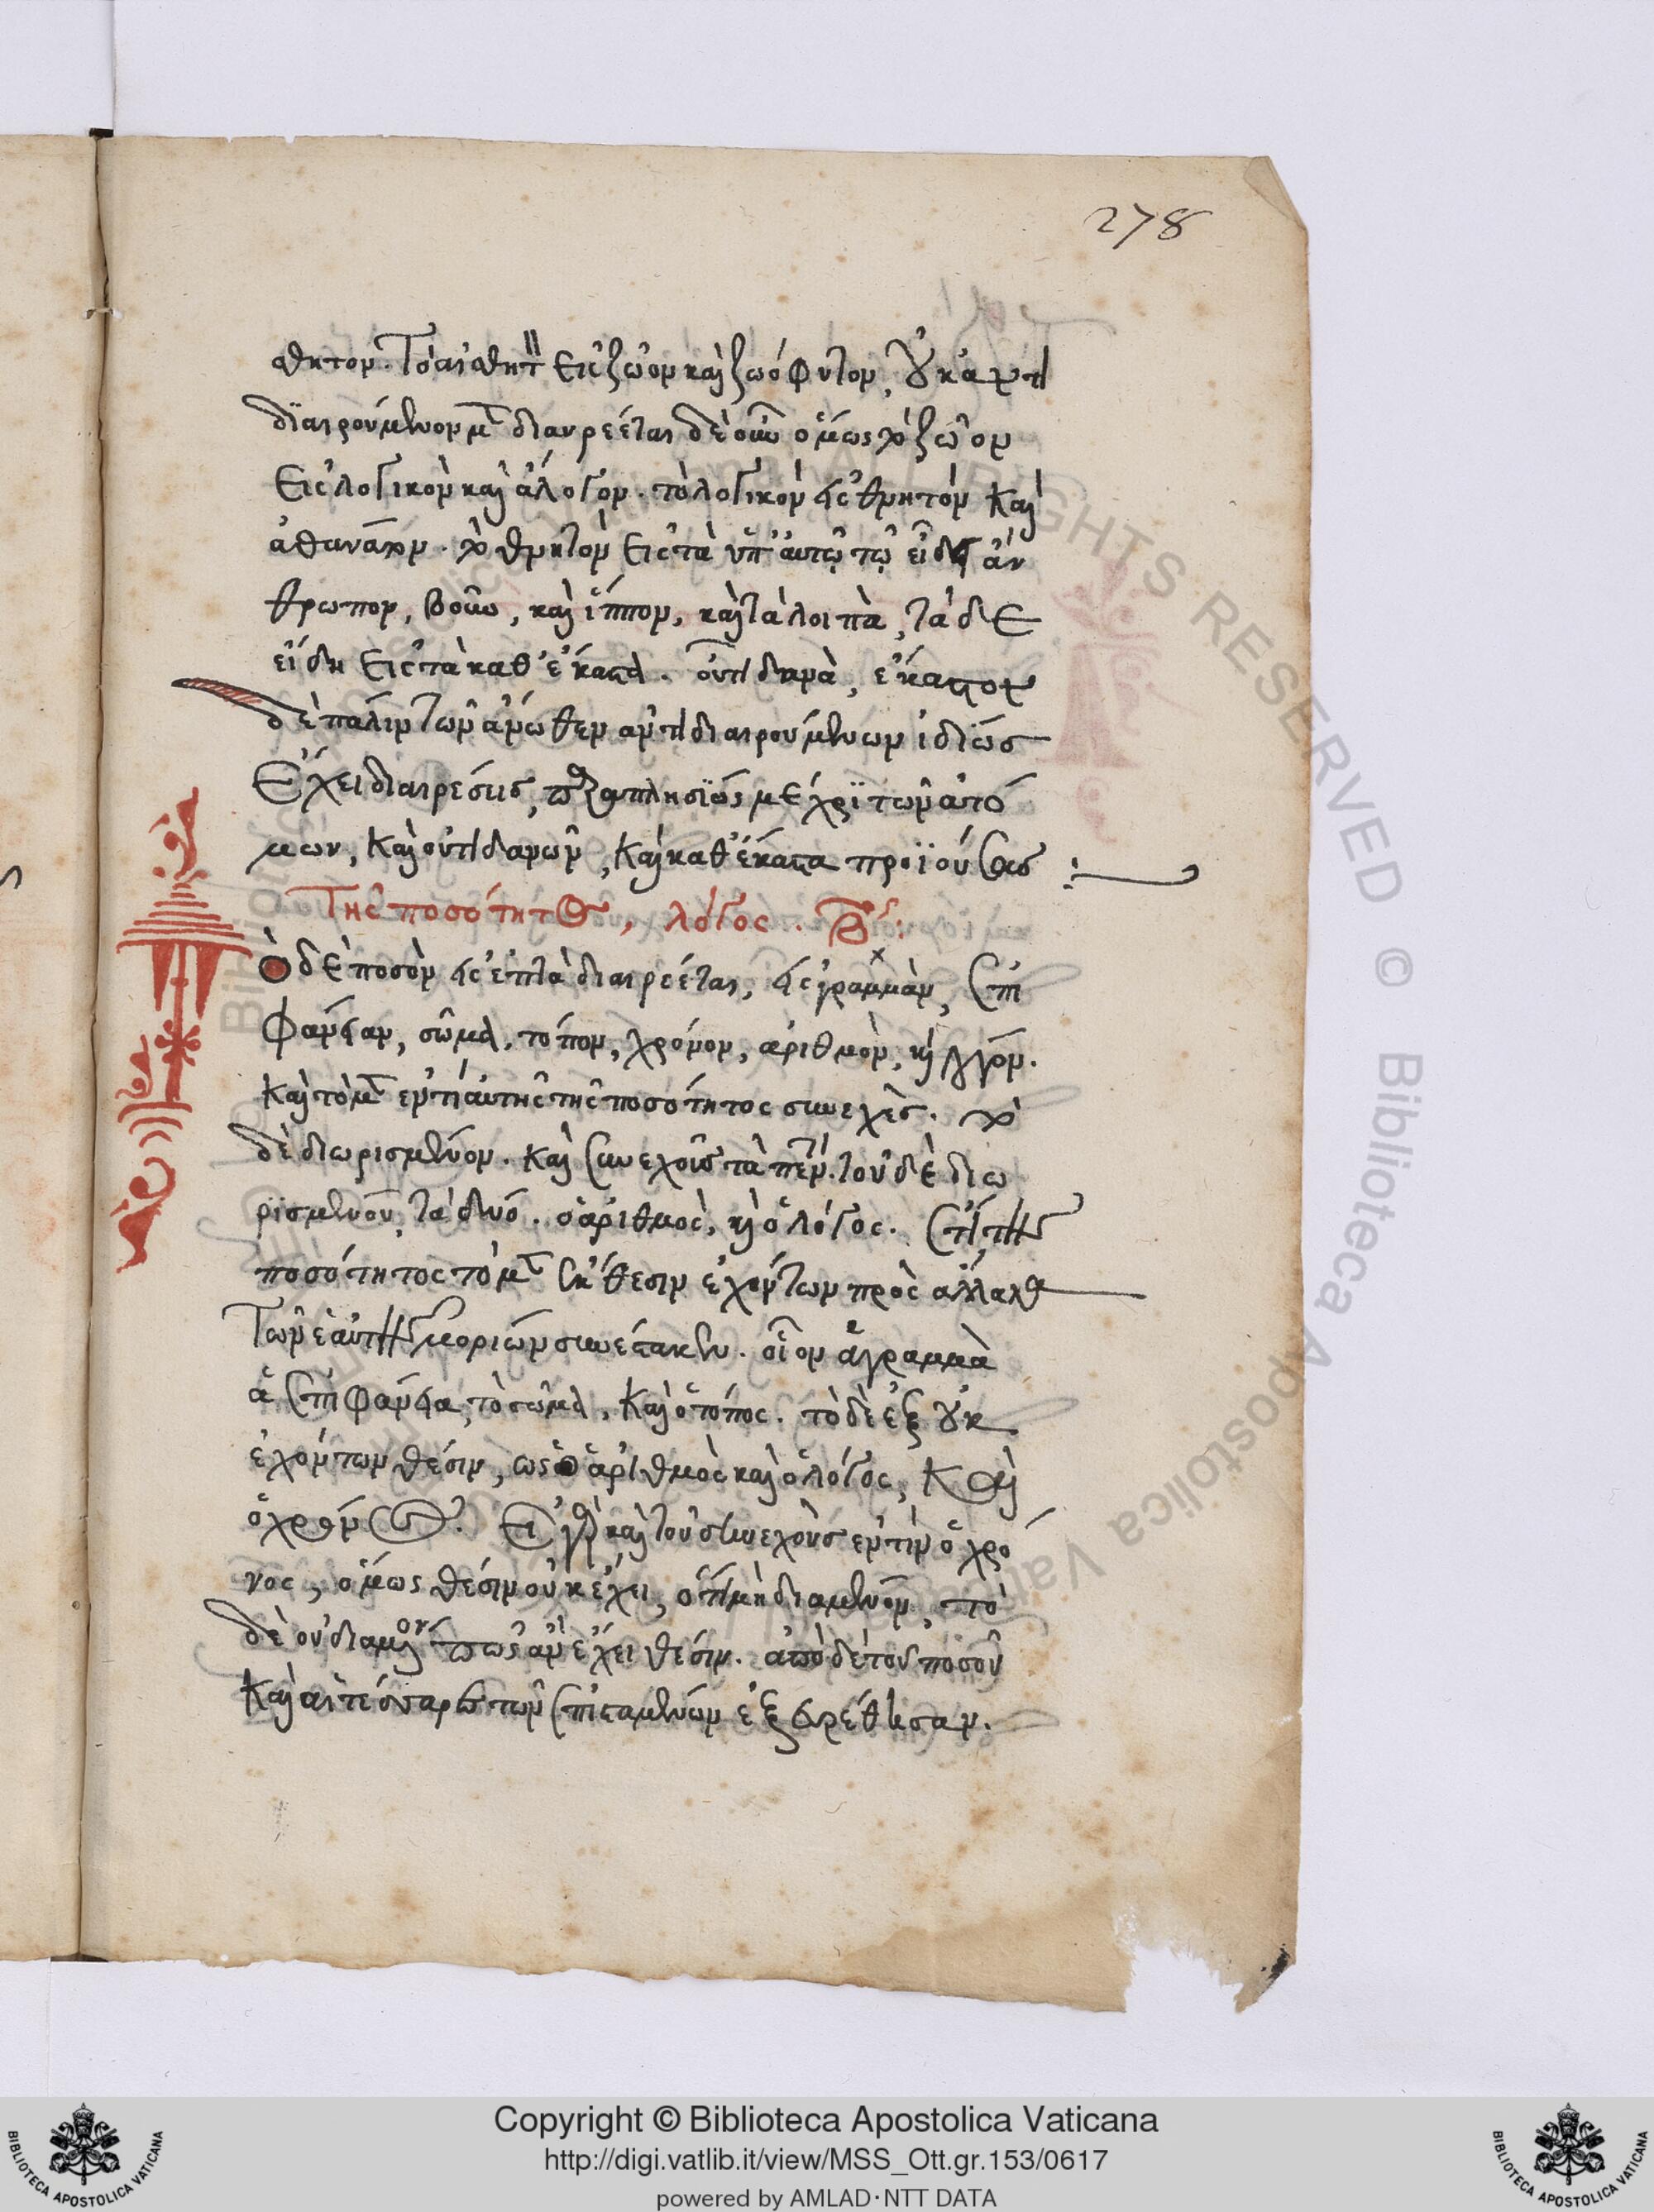 278
σθητον. τὸ αἰσθητὸν εἰς ζῶον καὶ ζωόφυτον, οὐκ ἀντι
διαιρούμενον μὲν διαιρεῖται δὲ οὖν ὅμως τὸ ζῶον
εἰς λογικὸν καὶ ἄλογον. τὸ λογικὸν εἰς θνητὸν καὶ
ἀθάνατον. τὸ θνητὸν εἰς τὰ ὑπ' αὐτῷ τῷ εἴδη ἄν
θρωπον, βοῦν, καὶ ἵππον, καὶ τὰ λοιπὰ, τὰ δὲ
εἴδη εἰς τὰ καθ' ἕκαστα. οὐτιδανὰ, ἕκαστον
δὲ πάλιν τῶν ἄνωθεν ἀντιδιαιρουμένων ἰδίως
ἔχει διαιρέσεις, παραπλησίως μέχρι τῶν ἀτό
μων, καὶ οὐτιδανῶν, καὶ καθ' ἕκαστα προϊούσας :
Τῆς ποσότητος, λόγος.
Τὸ δὲ ποσὸν εἰς ἑπτὰ διαιρεῖται, εἰς γραμμὰν, ἐπι
φάνειαν, σῶμα, τόπον, χρόνον, ἀριθμὸν, καὶ λόγον.
καὶ τὸ μέν ἐντι αὐτῆς τῆς ποσότητος συνεχὲς. τὸ
δὲ διωρισμένον. καὶ συνεχοῦς τὰ πέντε. τοῦ δὲ διω
ρισμένου, τὰ δύο. ὁ ἀριθμὸς, καὶ ὁ λόγος. ἔτι τῆς
ποσότητος τὸ μὲν ἐκ θέσιν ἐχόντων πρὸς ἄλλαλα
τῶν ἐν αὐτῆς μορίων συνέστακεν. οἷον ἁ γραμμὰ
ἁ ἐπιφάνεια, τὸ σῶμα, καὶ ὁ τόπος. τὸ δὲ ἐξ οὐκ
ἐχόντων θέσιν, ὡς ὁ ἀριθμὸς καὶ ὁ λόγος, καὶ
ὁ χρόνος. εἰ γὰρ καὶ τοῦ συνεχοῦς ἐντὶν ὁ χρό
νος, ὅμως θέσιν οὐκ ἔχει, ὅτι μὴ διαμένον, τὸ
δὲ οὐ διαμένον πῶς ἂν ἔχει θέσιν. ἀπὸ δὲ τοῦ ποσοῦ
καὶ αἱ τέσσαρες τῶν ἐπισταμένων ἐξευρέθησαν.
Copyright © Biblioteca Apostolica Vaticana
http://digi.vatlib.it/view/MSS_Ott.gr.153/0617
powered by AMLAD·NTT DATA